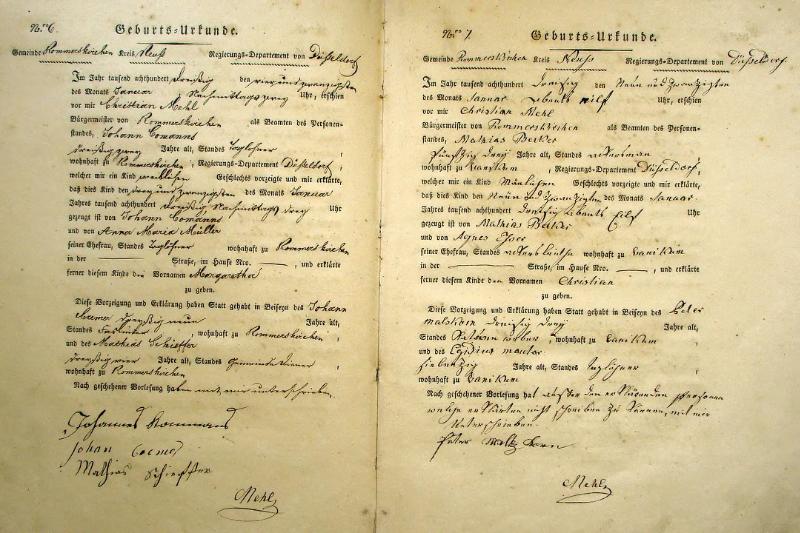 Nro 6
Geburts-Urkunde.
Gemeinde Rommerskirchen Kreis Neuß Regierungs-Departement von Düsseldorf
Im Jahr tausend achthundert dreißig den vier und zwanzigsten
des Monats Januar Nachmittags zwey Uhr, erschien
vor mir Christian Mehl
Bürgermeister von Rommerskirchen als Beamten des Personen-
standes, Johann Comanns
dreißig zwey Jahre alt, Standes Taglöhner,
wohnhaft zu Rommerskirchen, Regierungs-Departement Düsseldorf,
welcher mir ein Kind weiblichen Geschlechts vorzeigte und mir erklärte,
daß dies Kind den drey und zwanzigsten des Monats Januar
Jahres tausend achthundert dreißig Nachmittags drey Uhr
gezeugt ist von Johann Comanns
und von Anna Maria Müller
seiner Ehefrau, Standes Taglöhner wohnhaft zu Rommerskirchen
in der Straße, im Hause Nro. , und erklärte
ferner diesem Kinde den Vornamen Margaretha
zu geben.
Diese Vorzeigung und Erklärung haben Statt gehabt in Beiseyn des Johann
dreißig neun Jahre alt,
Standes wohnhaft zu Rommerskirchen,
und des Mathias Schieffer
dreißig vier Jahre alt, Standes Gemeinde
wohnhaft zu Rommerskirchen
Nach geschehener Vorlesung haben mit mir unterschrieben.
Johannes Kommans
Johan
Mathias Schieffer
Mehl
Nro 7
Geburts-Urkunde.
Gemeinde Rommerskirchen Kreis Neuss Regierungs-Departement von Düsseldorf
Im Jahr tausend achthundert dreißig den Neun und zwanzigsten
des Monats Januar Abends eilf Uhr, erschien
vor mir Christian Mehl
Bürgermeister von Rommerskirchen als Beamten des Personen-
standes, Mathias Becker
fünfzig drey Jahre alt, Standes Ackersman
wohnhaft zu, Regierungs-Departement Düsseldorf,
welcher mir ein Kind Mänlichen Geschlechts vorzeigte und mir erklärte,
daß dies Kind den Neun und zwanzigsten des Monats Januar
Jahres tausend achthundert dreißig Abents Eilf Uhr
gezeugt ist von Mathias Becker
und von Agnes Esser
seiner Ehefrau, Standes wohnhaft zu
in der Straße, im Hause Nro. , und erklärte
ferner diesem Kinde den Vornamen Christian
zu geben.
Diese Vorzeigung und Erklärung haben Statt gehabt in Beiseyn des Peter
dreißig drey Jahre alt,
Standes, wohnhaft zu
und des
siebenzig Jahre alt, Standes Taglöhner
wohnhaft zu
Nach geschehener Vorlesung hat außer den personen
welche erklärten nicht schreiben zu können, mit mir
Unterschrieben.
Peter
Mehl